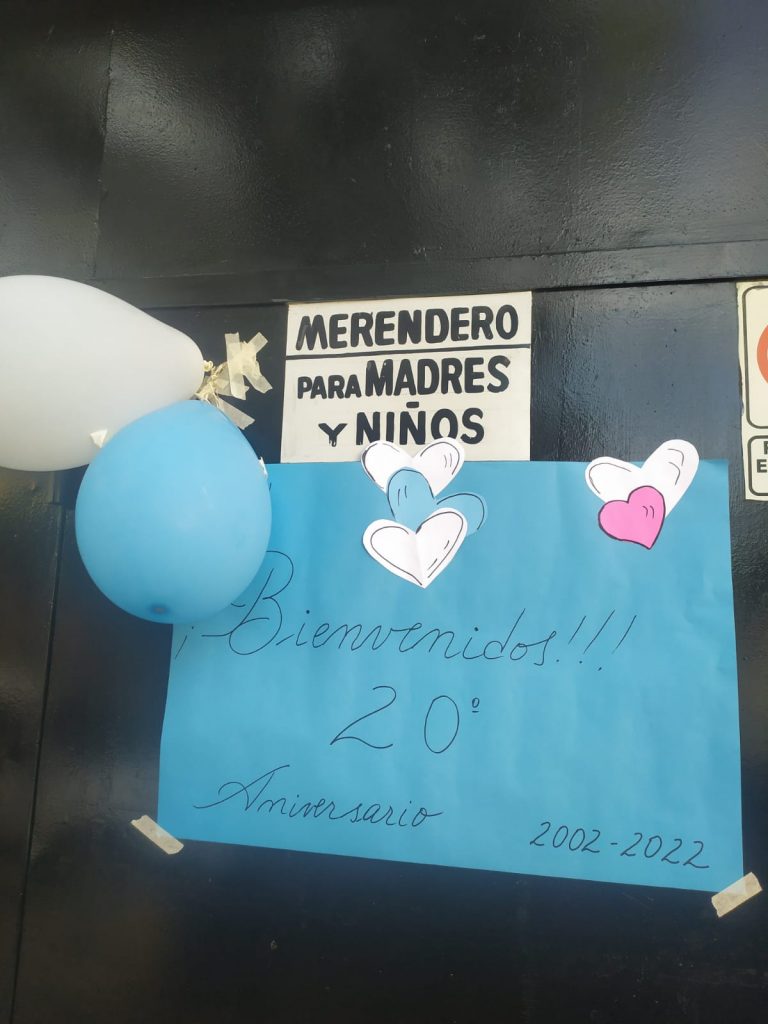 MERENDERO
PARA MADRES
Y NIÑOS
¡Bienvenidos!!!
20º
Aniversario
2002-2022